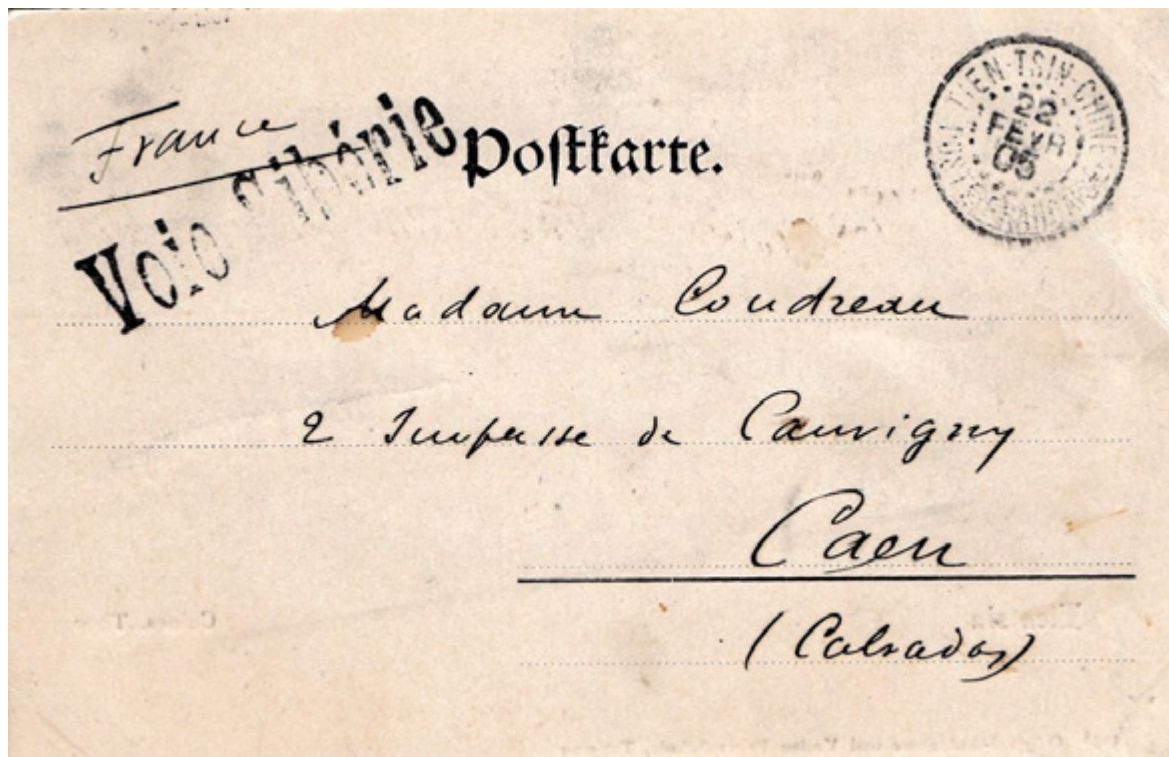 France
Voie Sibérie
Postkarte.
TIEN-TSIN-CHINE
22
FEVR
03
Madame Coudreau
2 Impasse de Cauvigny
Caen
(Calvados)